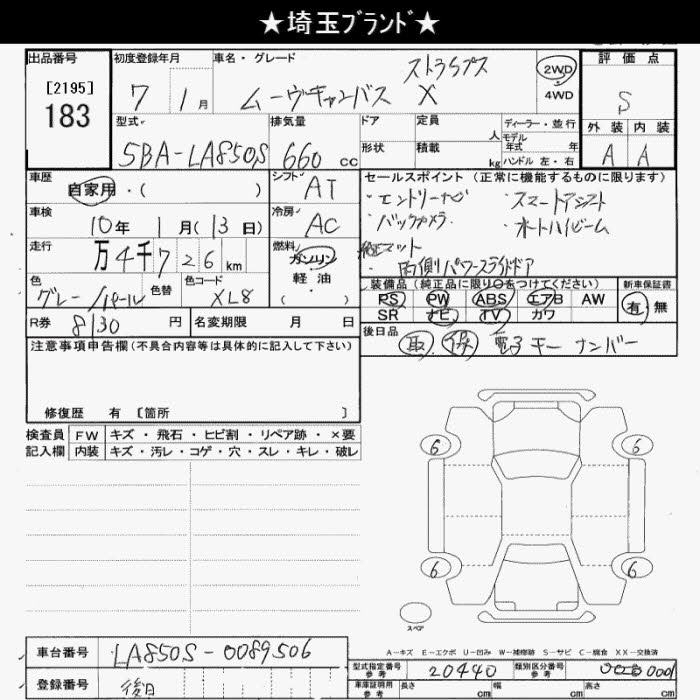 ★埼玉ﾌﾞﾗﾝﾄﾞ★
出品番号
[2195]
183
初度登録年月 7 1月
車名・グレード
ストライプス
ムーヴキャンバス X
2WD
4WD
評価点
S
外装 内装
A A
型式
5BA-LA850S
排気量
660 cc
ドア
形状
定員 人
積載 kg
ディーラー・並行
モデル年式 年
ハンドル 左・右
車歴
自家用・( )
シフト AT
車検
10年 1月(13日)
冷房 AC
走行
万4千726km
燃料
ガソリン
軽油
( )
色
グレー/パール
色替
色コード
XL8
R券 8130 円
名変期限 月 日
セールスポイント(正常に機能するものに限ります)
・エントリーナビ ・スマートアシスト
・バックカメラ ・オートハイビーム
・純正マット
・両側パワースライドドア
装備品(純正品に限り○をつけてください)
PS PW ABS エアB AW
SR ナビ TV カワ
新車保証書
有・無
後日品
取 保 電子キー ナンバー
注意事項申告欄(不具合内容等は具体的に記入して下さい)
修復歴 有 [箇所 ]
検査員記入欄
FW キズ・飛石・ヒビ割・リペア跡・×要
内装 キズ・汚レ・コゲ・穴・スレ・キレ・破レ
6 6
6 6
スペア
A-キズ E-エクボ U-凹み W-補修跡 S-サビ C-腐食 XX-交換済
車台番号
LA850S-0089506
登録番号
後日
型式指定番号 参考 20440
類別区分番号 参考 0001
車庫証明用 参考
長さ cm 幅 cm 高さ cm